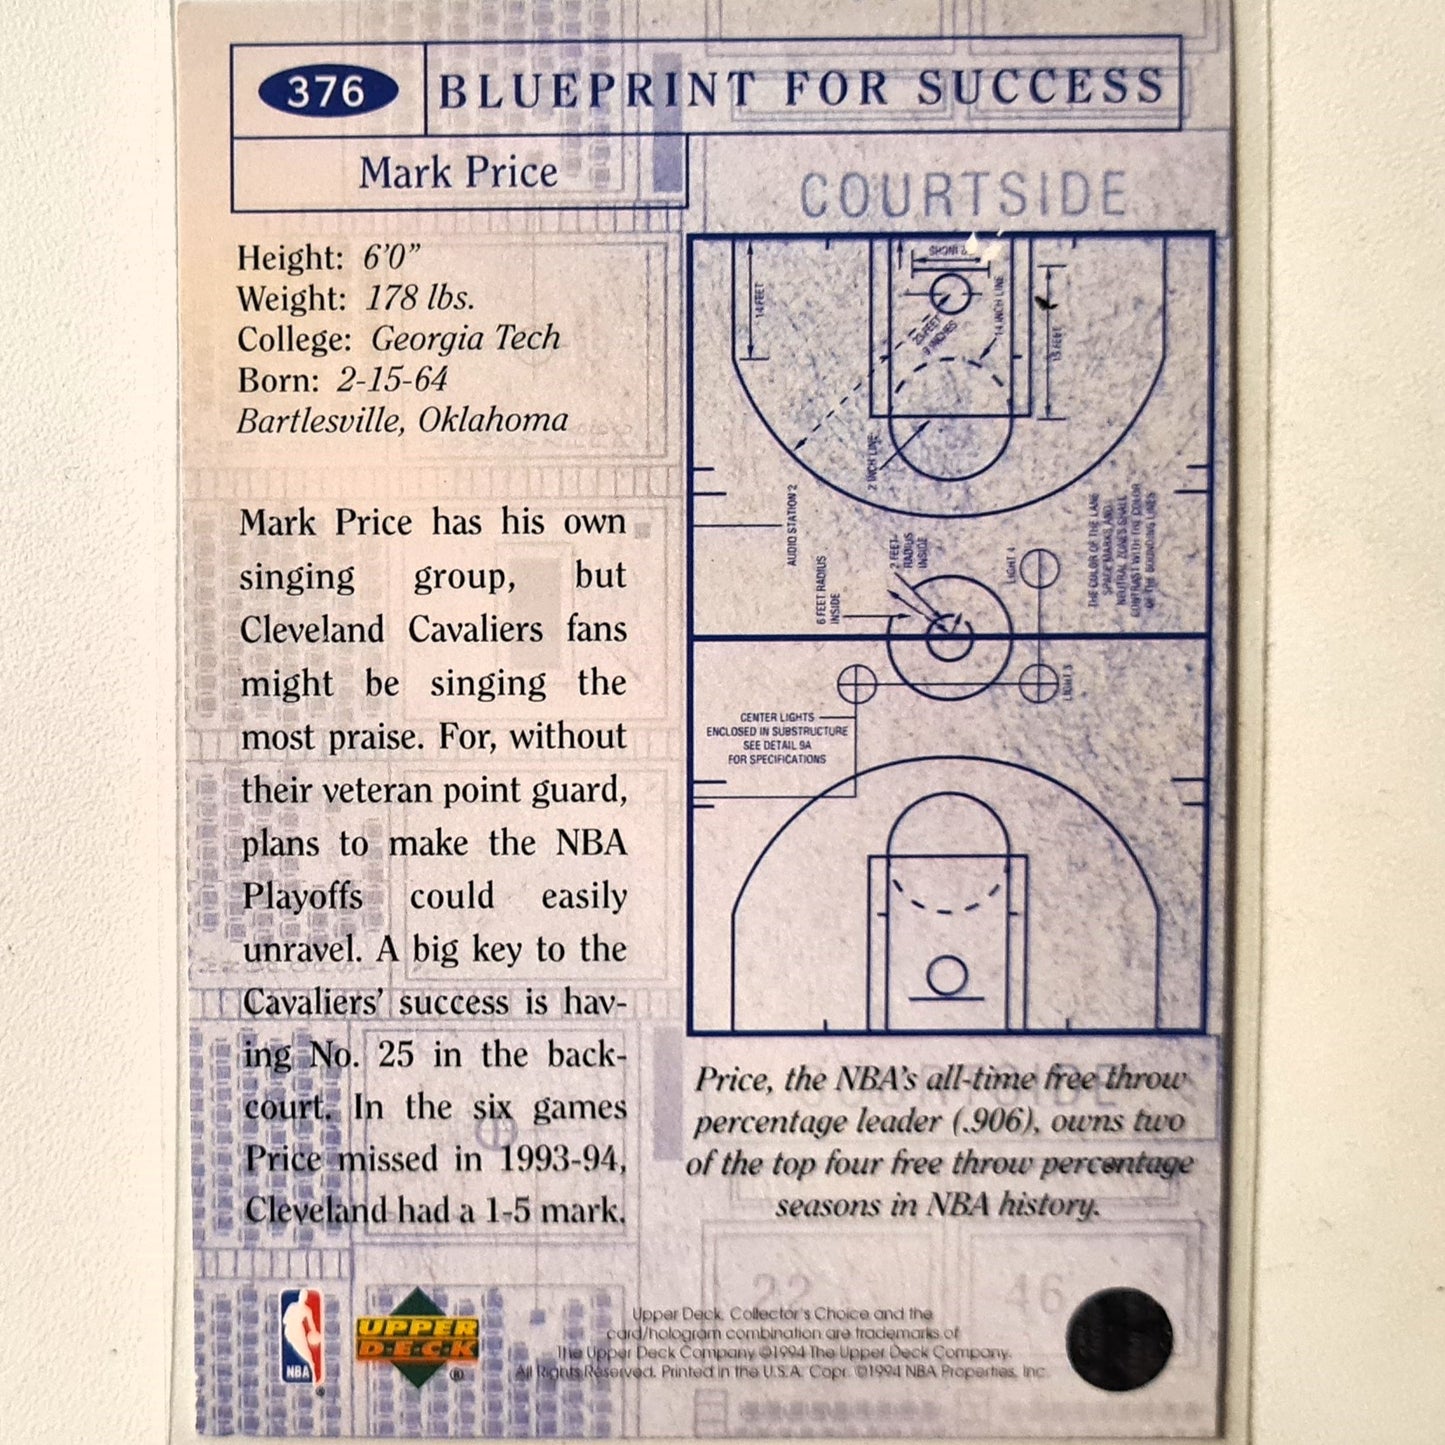 376
BLUEPRINT FOR SUCCESS
Mark Price
Height: 6'0”
Weight: 178 lbs.
College: Georgia Tech
Born: 2-15-64
Bartlesville, Oklahoma
Mark Price has his own
singing group, but
Cleveland Cavaliers fans
might be singing the
most praise. For, without
their veteran point guard,
plans to make the NBA
Playoffs could easily
unravel. A big key to the
Cavaliers’ success is hav-
ing No. 25 in the back-
court. In the six games
Price missed in 1993-94,
Cleveland had a 1-5 mark.
COURTSIDE
14 FEET
14 INCH LINE
15 FEET
23 FEET
9 INCHES
2 INCH LINE
AUDIO STATION 2
6 FEET RADIUS
INSIDE
2 FEET
RADIUS
INSIDE
LIGHT 4
THE COLOR OF THE LANE
SPACE MARKS AND
NEUTRAL ZONES SHALL
CONTRAST WITH THE COLOR
OF THE BOUNDING LINES
LIGHT 3
CENTER LIGHTS
ENCLOSED IN SUBSTRUCTURE
SEE DETAIL 9A
FOR SPECIFICATIONS
Price, the NBA's all-time free throw
percentage leader (.906), owns two
of the top four free throw percentage
seasons in NBA history.
22 46
NBA ®
UPPER
DECK ®
Upper Deck, Collector's Choice and the
card/hologram combination are trademarks of
The Upper Deck Company ©1994 The Upper Deck Company.
All Rights Reserved. Printed in the U.S.A. Copr. ©1994 NBA Properties, Inc.